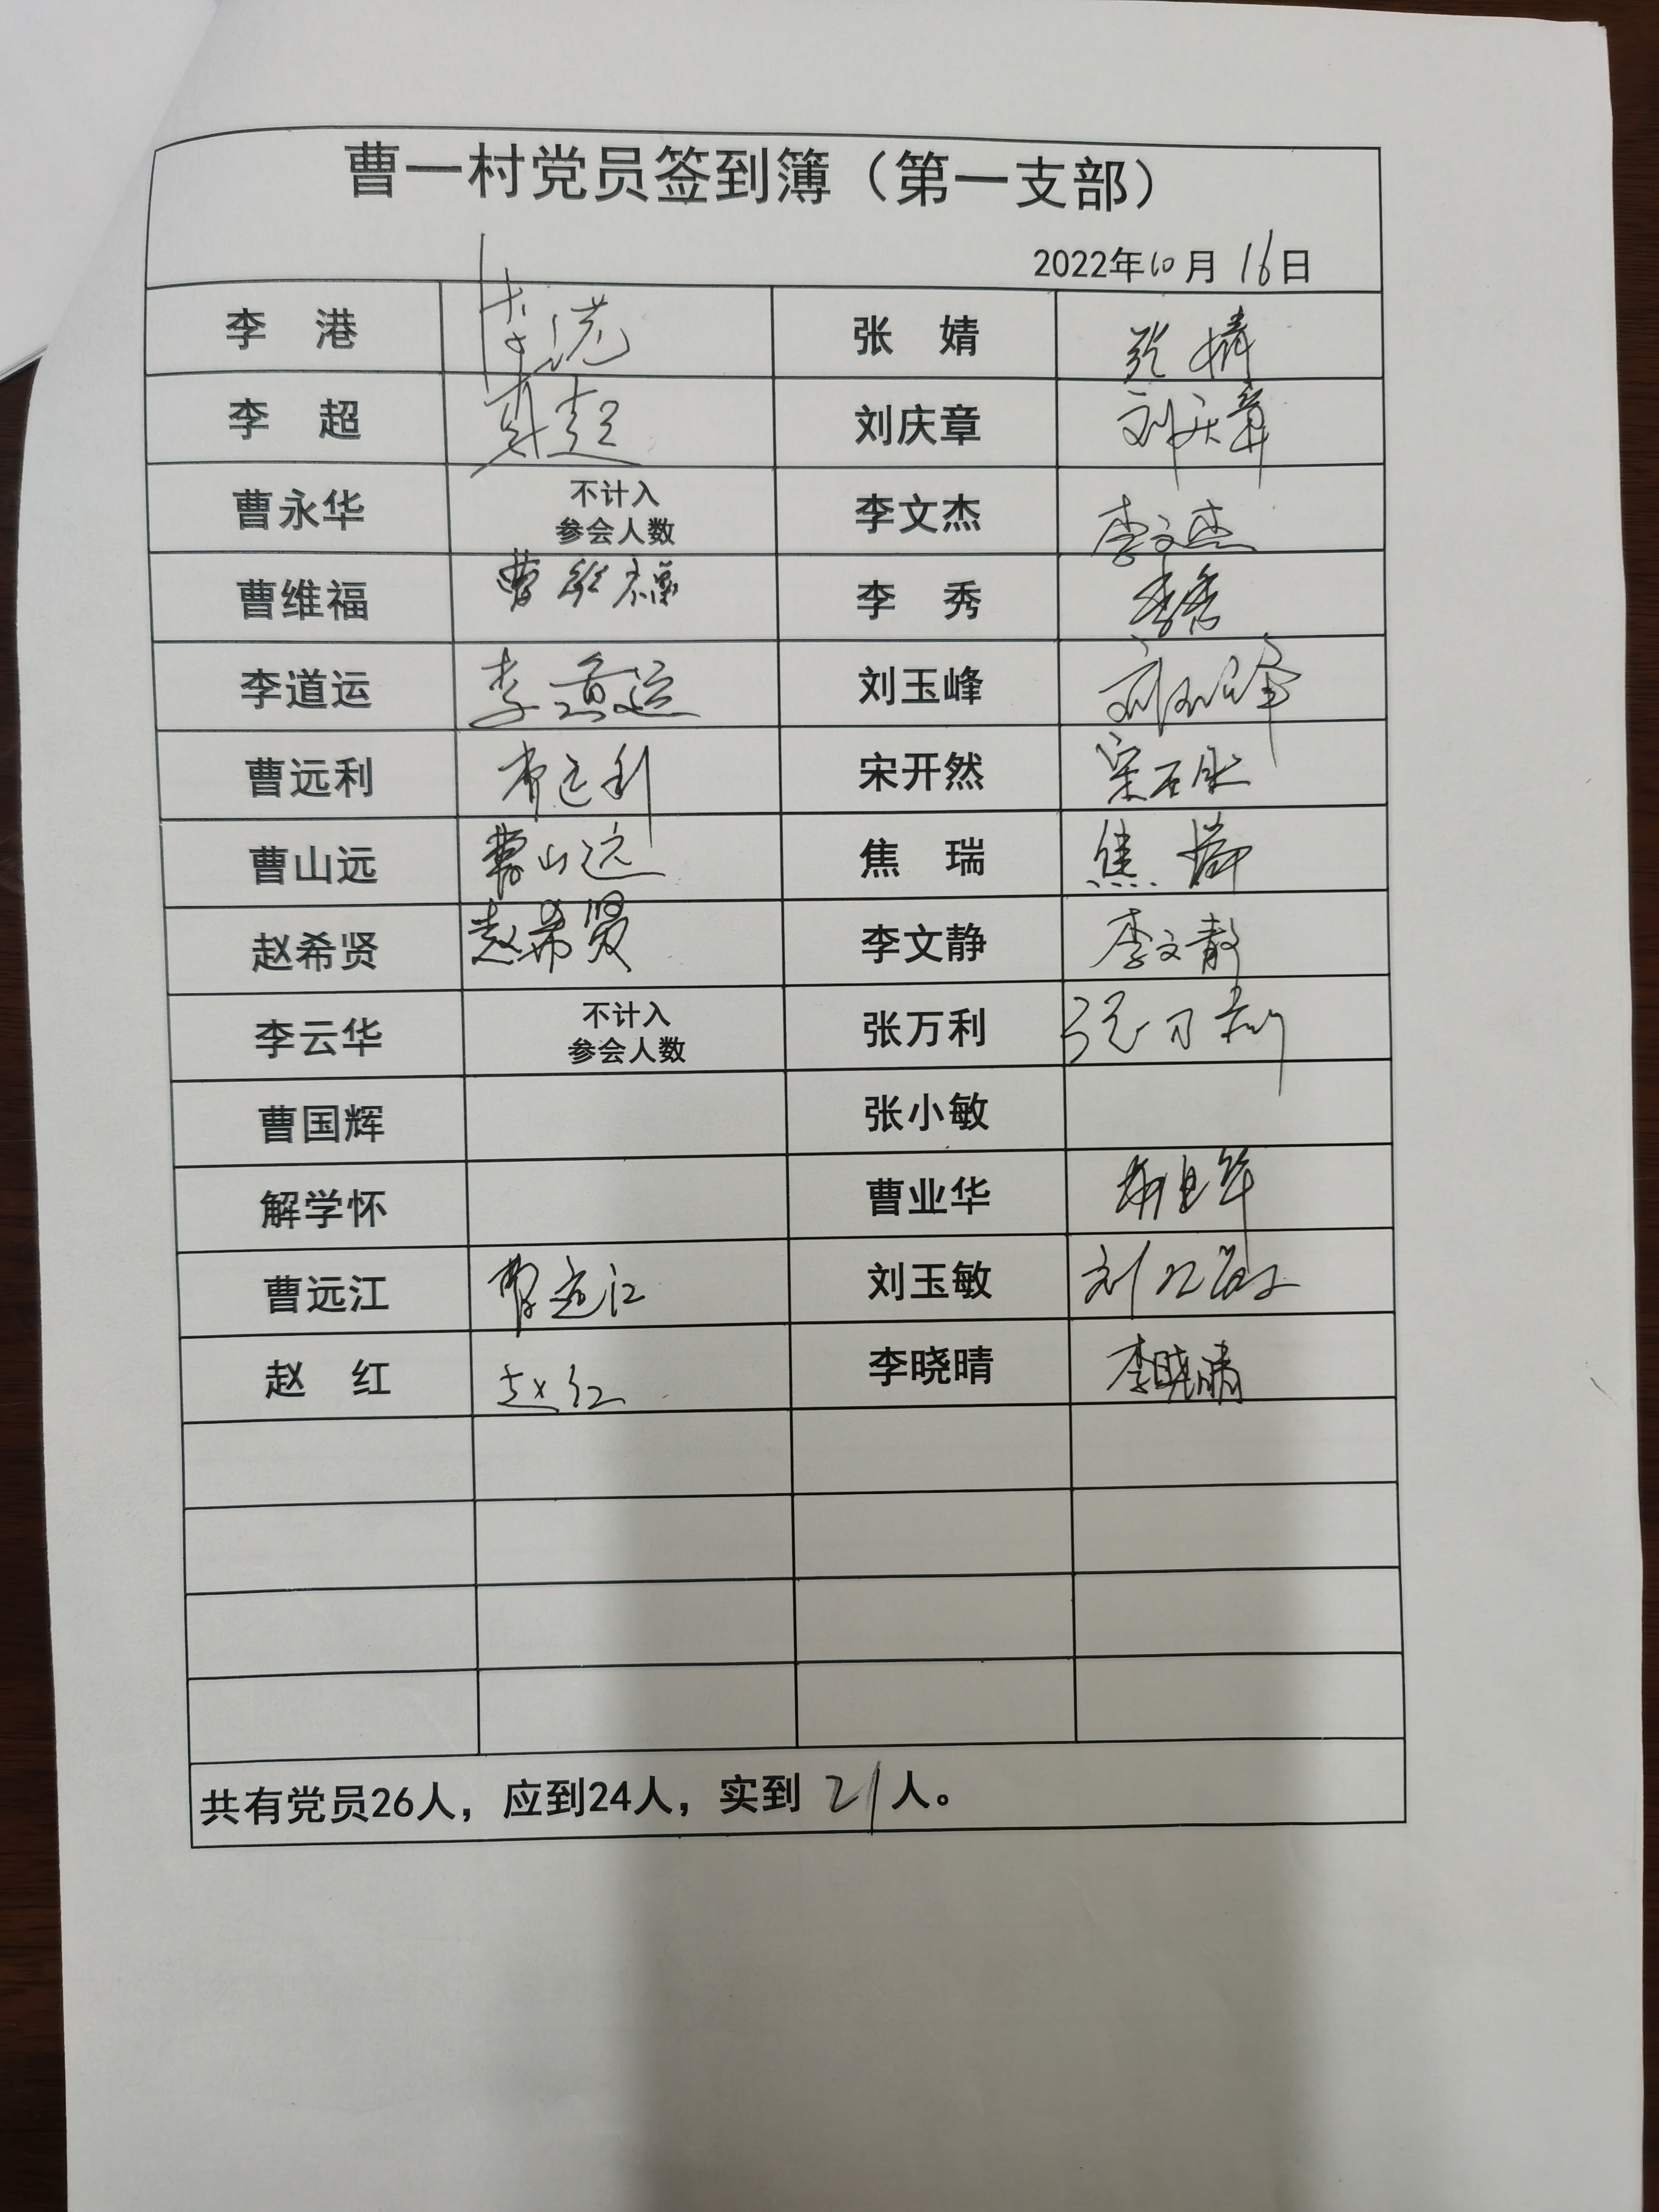 曹一村党员签到簿（第一支部）
2022年10月16日
李 港 李港 张 婧 张婧
李 超 李超 刘庆章 刘庆章
曹永华 不计入 李文杰 李文杰
参会人数
曹维福 曹维福 李 秀 李秀
李道运 李道运 刘玉峰 刘玉峰
曹远利 曹远利 宋开然 宋开然
曹山远 曹山远 焦 瑞 焦瑞
赵希贤 赵希贤 李文静 李文静
李云华 不计入 张万利 张万利
参会人数
曹国辉 张小敏
解学怀 曹业华 曹业华
曹远江 曹远江 刘玉敏 刘玉敏
赵 红 赵红 李晓晴 李晓晴
共有党员26人，应到24人，实到21人。